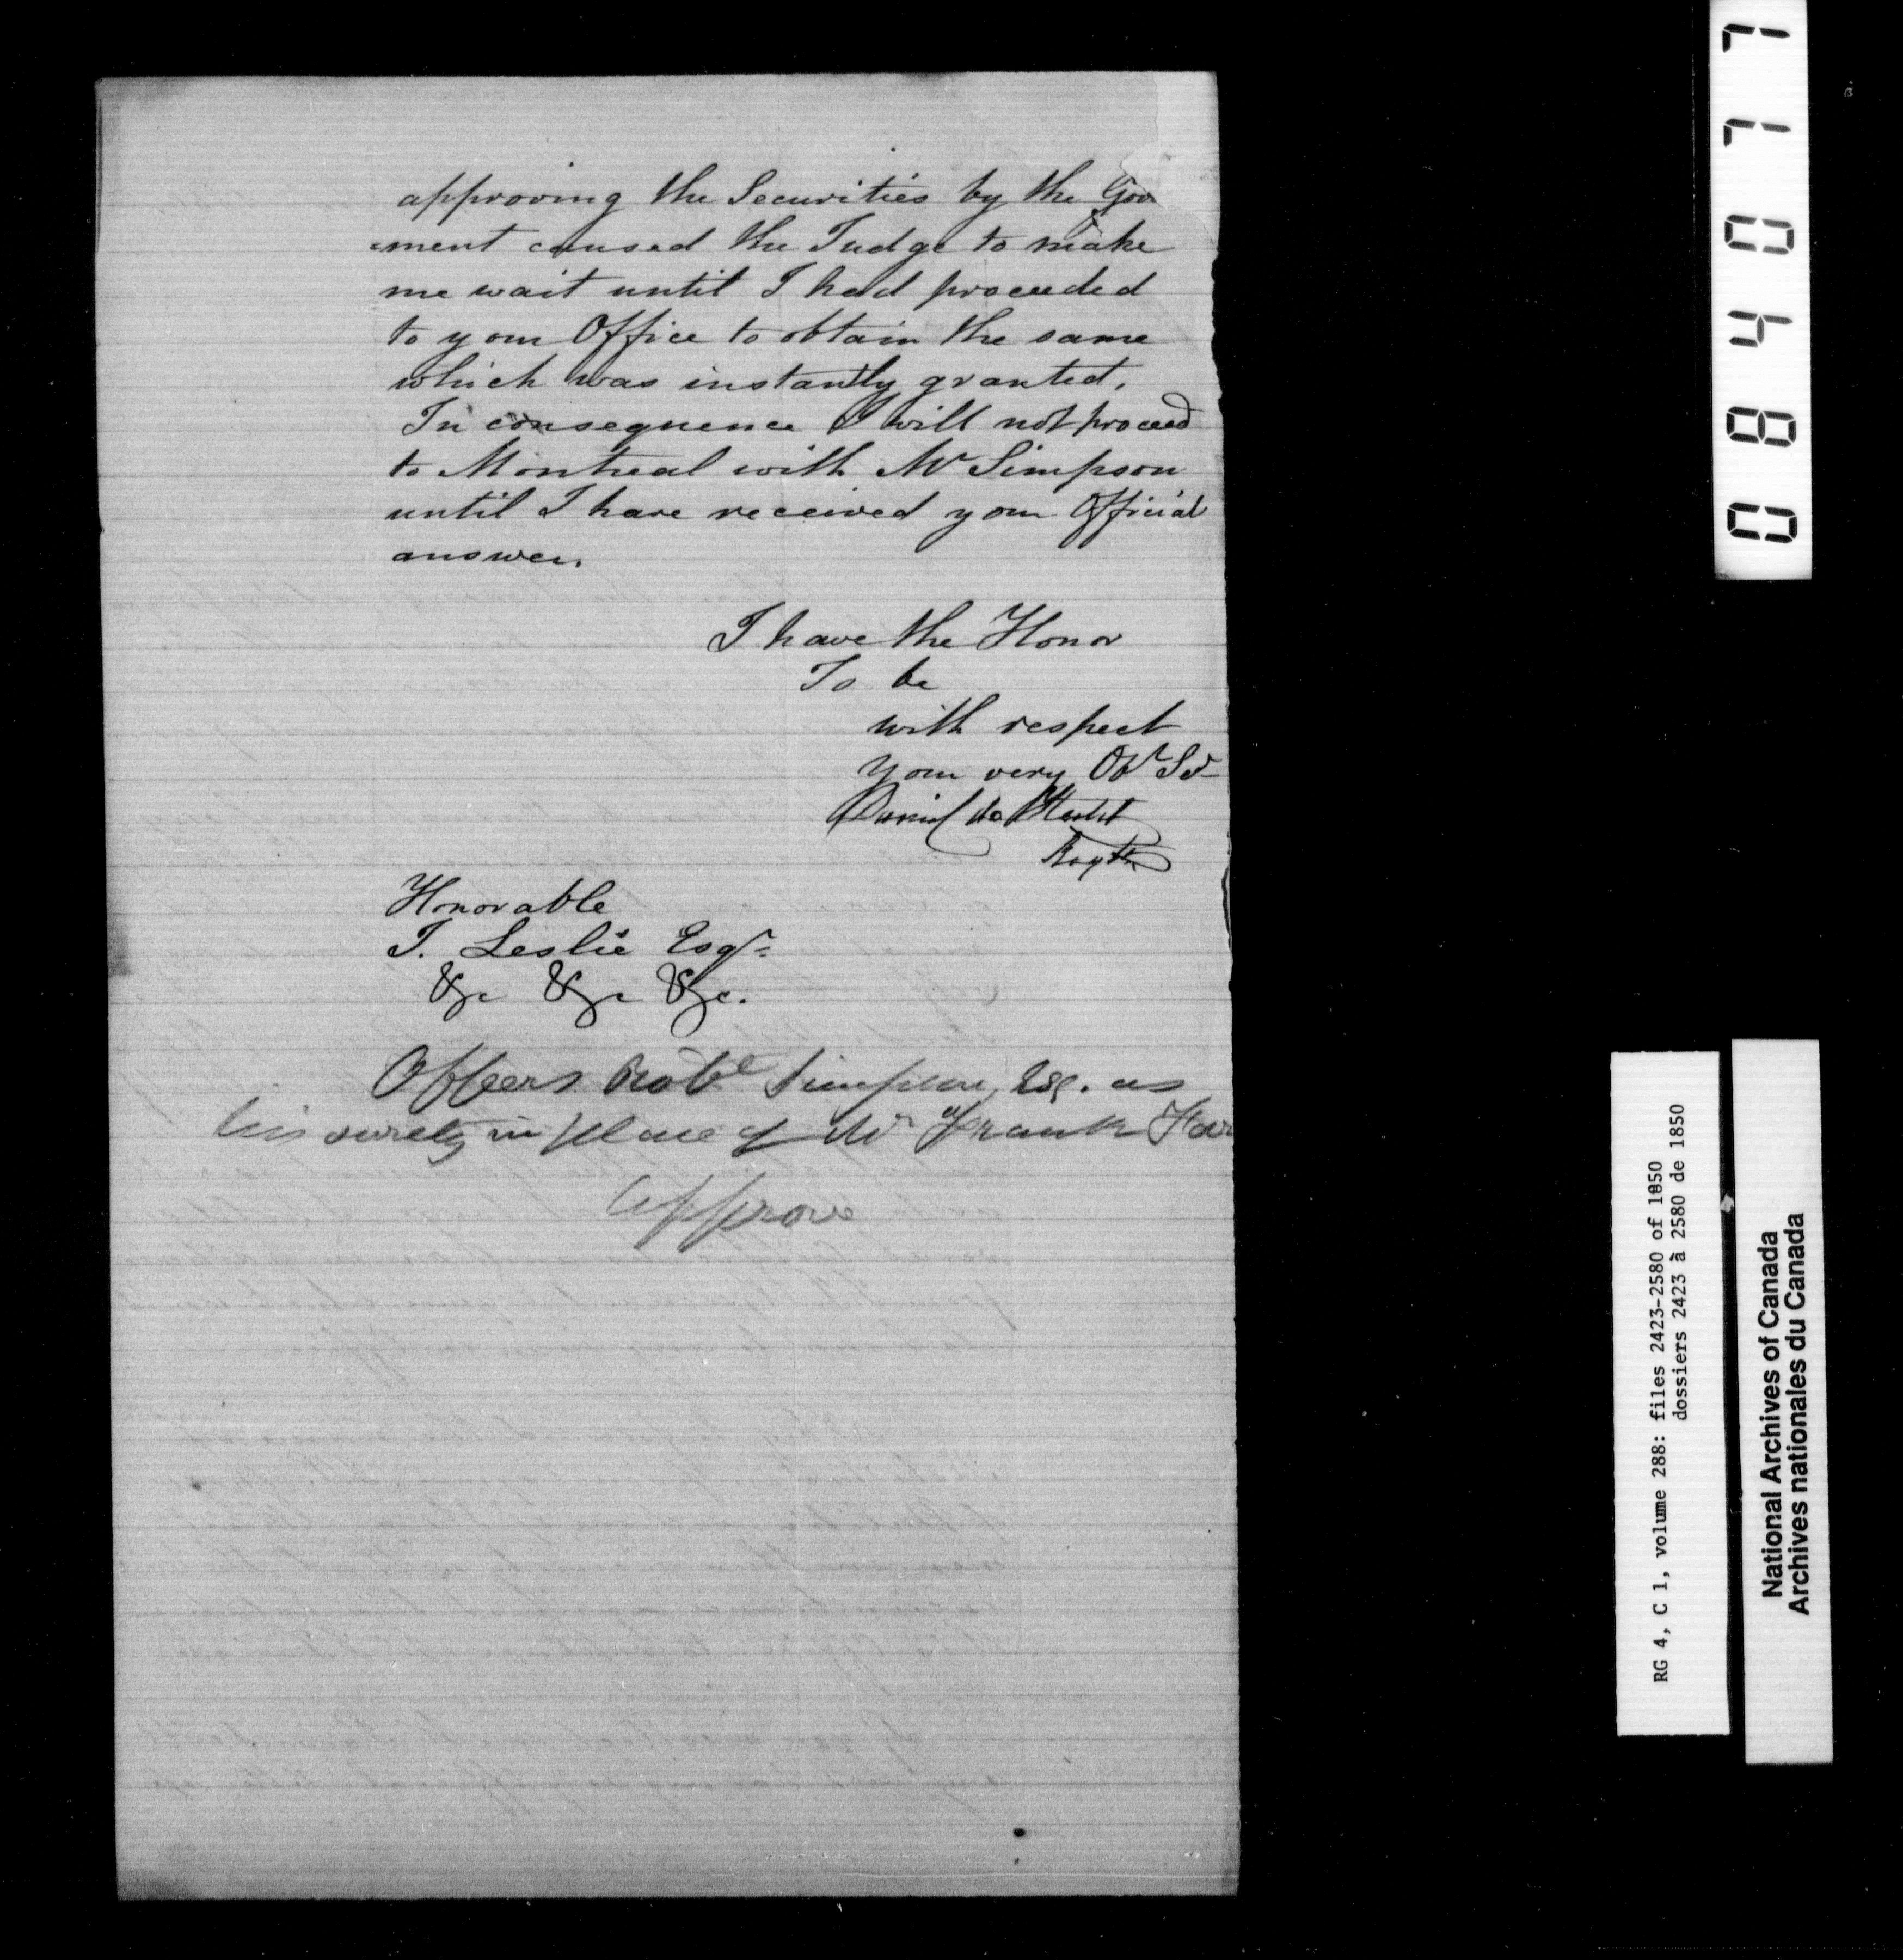 approving the Securities by the Gov
-ment caused the Judge to make
me wait until I had proceeded
to your Office to obtain the same
which was instantly granted,
In consequence I will not proceed
to Montreal with Mr Simpson
until I have received your Official
answer.
I have the Honor
To be
with respect
your very Obt St
Daniel de Hertel
Honorable
J. Leslie Esqr.
&c &c &c.
Offers Simpson, Esq. as
his surety in place of Mr Frank
Approve
084077
RG 4, C 1, volume 288: files 2423-2580 of 1850
dossiers 2423 à 2580 de 1850
National Archives of Canada
Archives nationales du Canada